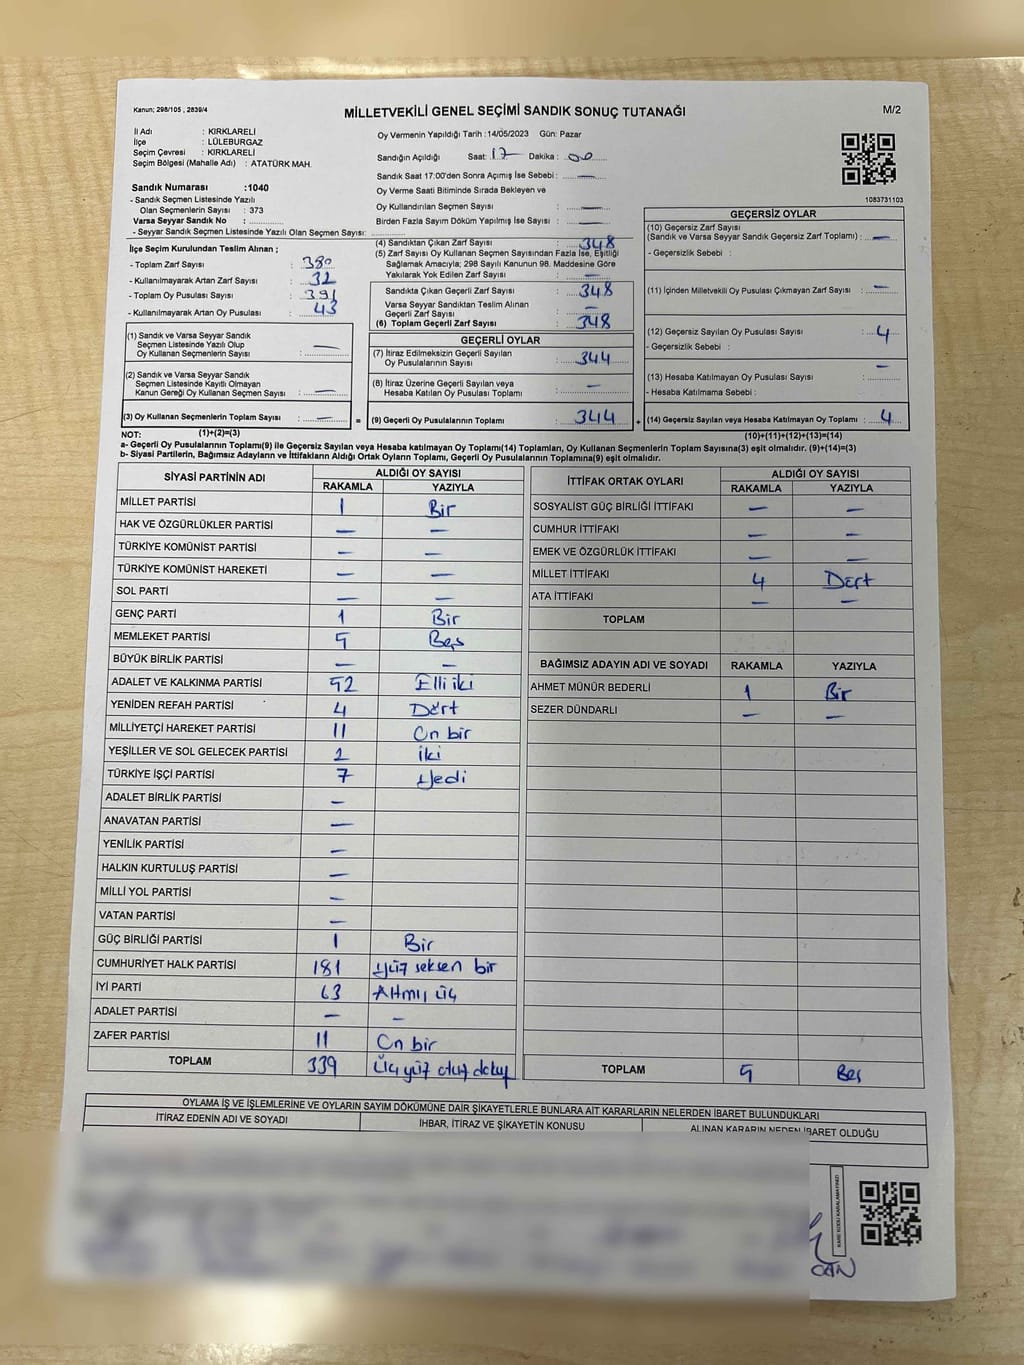 Kanun; 298/105 , 2839/4
MİLLETVEKİLİ GENEL SEÇİMİ SANDIK SONUÇ TUTANAĞI
M/2
İl Adı : KIRKLARELİ
İlçe : LÜLEBURGAZ
Seçim Çevresi : KIRKLARELİ
Seçim Bölgesi (Mahalle Adı) : ATATÜRK MAH.
Sandık Numarası :1040
- Sandık Seçmen Listesinde Yazılı
Olan Seçmenlerin Sayısı : 373
Varsa Seyyar Sandık No :
- Seyyar Sandık Seçmen Listesinde Yazılı Olan Seçmen Sayısı:
Oy Vermenin Yapıldığı Tarih : 14/05/2023 Gün: Pazar
Sandığın Açıldığı Saat: 17 Dakika : 00
Sandık Saat 17:00'den Sonra Açımış İse Sebebi : —
Oy Verme Saati Bitiminde Sırada Bekleyen ve
Oy Kullandırılan Seçmen Sayısı : —
Birden Fazla Sayım Döküm Yapılmış İse Sayısı : —
1083731103
İlçe Seçim Kurulundan Teslim Alınan ;
- Toplam Zarf Sayısı : 380
- Kullanılmayarak Artan Zarf Sayısı : 32
- Toplam Oy Pusulası Sayısı : 391
- Kullanılmayarak Artan Oy Pusulası : 43
(1) Sandık ve Varsa Seyyar Sandık
Seçmen Listesinde Yazılı Olup
Oy Kullanan Seçmenlerin Sayısı : —
(2) Sandık ve Varsa Seyyar Sandık
Seçmen Listesinde Kayıtlı Olmayan
Kanun Gereği Oy Kullanan Seçmen Sayısı : —
(3) Oy Kullanan Seçmenlerin Toplam Sayısı : — =
(1)+(2)=(3)
(4) Sandıktan Çıkan Zarf Sayısı : 348
(5) Zarf Sayısı Oy Kullanan Seçmen Sayısından Fazla İse, Eşitliği
Sağlamak Amacıyla; 298 Sayılı Kanunun 98. Maddesine Göre
Yakılarak Yok Edilen Zarf Sayısı : —
Sandıkta Çıkan Geçerli Zarf Sayısı : 348
Varsa Seyyar Sandıktan Teslim Alınan
Geçerli Zarf Sayısı : —
(6) Toplam Geçerli Zarf Sayısı : 348
GEÇERLİ OYLAR
(7) İtiraz Edilmeksizin Geçerli Sayılan
Oy Pusulalarının Sayısı : 344
(8) İtiraz Üzerine Geçerli Sayılan veya
Hesaba Katılan Oy Pusulası Toplamı : —
(9) Geçerli Oy Pusulalarının Toplamı : 344 +
GEÇERSİZ OYLAR
(10) Geçersiz Zarf Sayısı
(Sandık ve Varsa Seyyar Sandık Geçersiz Zarf Toplamı) : —
- Geçersizlik Sebebi :
(11) İçinden Milletvekili Oy Pusulası Çıkmayan Zarf Sayısı : —
(12) Geçersiz Sayılan Oy Pusulası Sayısı : 4
- Geçersizlik Sebebi :
(13) Hesaba Katılmayan Oy Pusulası Sayısı : —
- Hesaba Katılmama Sebebi :
(14) Geçersiz Sayılan veya Hesaba Katılmayan Oy Toplamı : 4
(10)+(11)+(12)+(13)=(14)
NOT:
a- Geçerli Oy Pusulalarının Toplamı(9) ile Geçersiz Sayılan veya Hesaba katılmayan Oy Toplamı(14) Toplamları, Oy Kullanan Seçmenlerin Toplam Sayısına(3) eşit olmalıdır. (9)+(14)=(3)
b- Siyasi Partilerin, Bağımsız Adayların ve İttifakların Aldığı Ortak Oyların Toplamı, Geçerli Oy Pusulalarının Toplamına(9) eşit olmalıdır.
SİYASİ PARTİNİN ADI ALDIĞI OY SAYISI
RAKAMLA YAZIYLA
MİLLET PARTİSİ 1 Bir
HAK VE ÖZGÜRLÜKLER PARTİSİ — —
TÜRKİYE KOMÜNİST PARTİSİ — —
TÜRKİYE KOMÜNİST HAREKETİ — —
SOL PARTİ — —
GENÇ PARTİ 1 Bir
MEMLEKET PARTİSİ 5 Beş
BÜYÜK BİRLİK PARTİSİ — —
ADALET VE KALKINMA PARTİSİ 52 Elli iki
YENİDEN REFAH PARTİSİ 4 Dört
MİLLİYETÇİ HAREKET PARTİSİ 11 On bir
YEŞİLLER VE SOL GELECEK PARTİSİ 2 iki
TÜRKİYE İŞÇİ PARTİSİ 7 Yedi
ADALET BİRLİK PARTİSİ —
ANAVATAN PARTİSİ —
YENİLİK PARTİSİ —
HALKIN KURTULUŞ PARTİSİ —
MİLLİ YOL PARTİSİ —
VATAN PARTİSİ —
GÜÇ BİRLİĞİ PARTİSİ 1 Bir
CUMHURİYET HALK PARTİSİ 181 yüz seksen bir
İYİ PARTİ 63 Altmış üç
ADALET PARTİSİ — —
ZAFER PARTİSİ 11 On bir
TOPLAM 339 Üç yüz otuz dokuz
İTTİFAK ORTAK OYLARI ALDIĞI OY SAYISI
RAKAMLA YAZIYLA
SOSYALİST GÜÇ BİRLİĞİ İTTİFAKI — —
CUMHUR İTTİFAKI — —
EMEK VE ÖZGÜRLÜK İTTİFAKI — —
MİLLET İTTİFAKI 4 Dört
ATA İTTİFAKI — —
TOPLAM
BAĞIMSIZ ADAYIN ADI VE SOYADI RAKAMLA YAZIYLA
AHMET MÜNÜR BEDERLİ 1 Bir
SEZER DÜNDARLI — —
TOPLAM 5 Beş
OYLAMA İŞ VE İŞLEMLERİNE VE OYLARIN SAYIM DÖKÜMÜNE DAİR ŞİKAYETLERLE BUNLARA AİT KARARLARIN NELERDEN İBARET BULUNDUKLARI
İTİRAZ EDENİN ADI VE SOYADI İHBAR, İTİRAZ VE ŞİKAYETİN KONUSU ALINAN KARARIN NEDEN İBARET OLDUĞU
KARE KODU KARALAMAYINIZ!
CAN